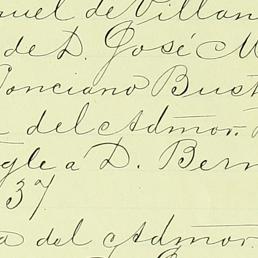 nuel de Villan
de D. José M
Ponciano Bust
del Admor.
gle a D. Bern
37
a del Admor.